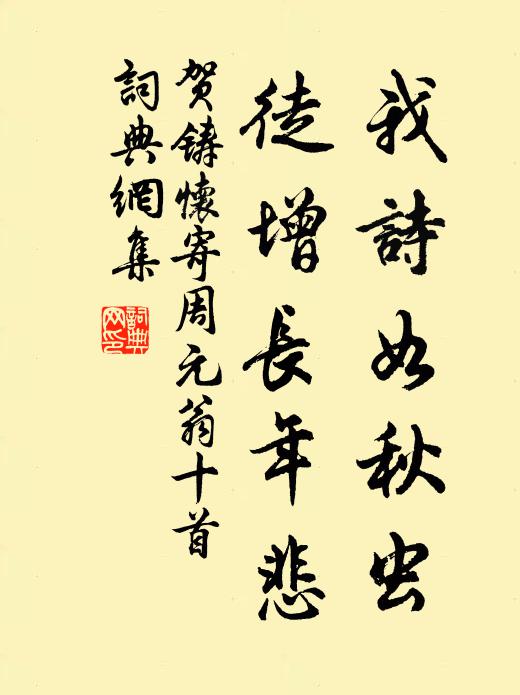 我詩如秋虫
徒增長年悲
贺鑄懷寄周元翁十首
詞典網集
詞典网印